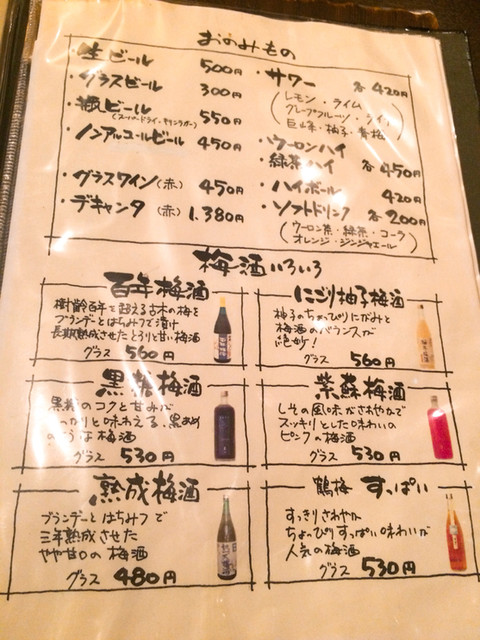 おのみもの
・生ビール 500円
・グラスビール 300円
・瓶ビール 550円
(スーパードライ、キリンラガー)
・ノンアルコールビール 450円
・グラスワイン(赤) 450円
・デキャンタ (赤) 1,380円
・サワー 各420円
(レモン・ライム
グレープフルーツ・ライチ
巨峰・柚子・青梅)
・ウーロンハイ
・緑茶ハイ 各450円
・ハイボール 420円
・ソフトドリンク 各200円
(ウーロン茶・緑茶・コーラ
オレンジ・ジンジャエール)
梅酒いろいろ
百年梅酒
樹齢百年を超える古木の梅を
ブランデーとはちみつで漬け
長期熟成させたとろりと甘い梅酒
グラス 560円
にごり柚子梅酒
柚子のちょっぴりにがみと
梅酒のバランスが
絶妙!
グラス 560円
黒糖梅酒
黒糖のコクと甘みが
しっかりと味わえる、黒あめ
のような梅酒
グラス 530円
紫蘇梅酒
しその風味がさわやかで
スッキリとした味わいの
ピンクの梅酒
グラス 530円
熟成梅酒
ブランデーとはちみつで
三年熟成させた
やや甘口の梅酒
グラス 480円
鶴梅 すっぱい
すっきりさわやか
ちょっぴりすっぱい味わいが
人気の梅酒
グラス 530円